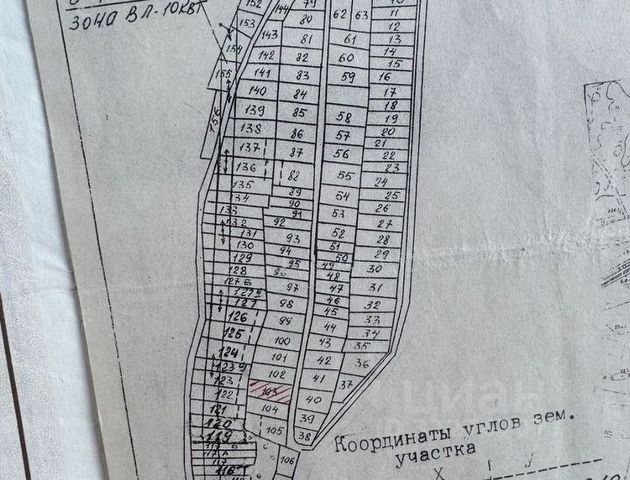 ЗОНА ВЛ-10КВТ
152
153
154
155
156
144
143
142
141
140
139
138
137
136
135
134
133
132
131
130
129
128
127Б
127А
127
126
125
124
123А
123
122
121
120
119
117Б
117А
117
116
79
80
81
82
83
84
85
86
87
88
89
90
91
92
93
94
95
96
97
98
99
100
101
102
103
104
105
106
62
63
61
60
59
58
57
56
55
54
53
52
51
50
49
48
47
46
45
44
43
42
41
40
39
38
11
12
13
14
15
16
17
18
19
20
21
22
23
24
25
26
27
28
29
30
31
32
33
34
35
36
37
Координаты углов зем.
участка
X У